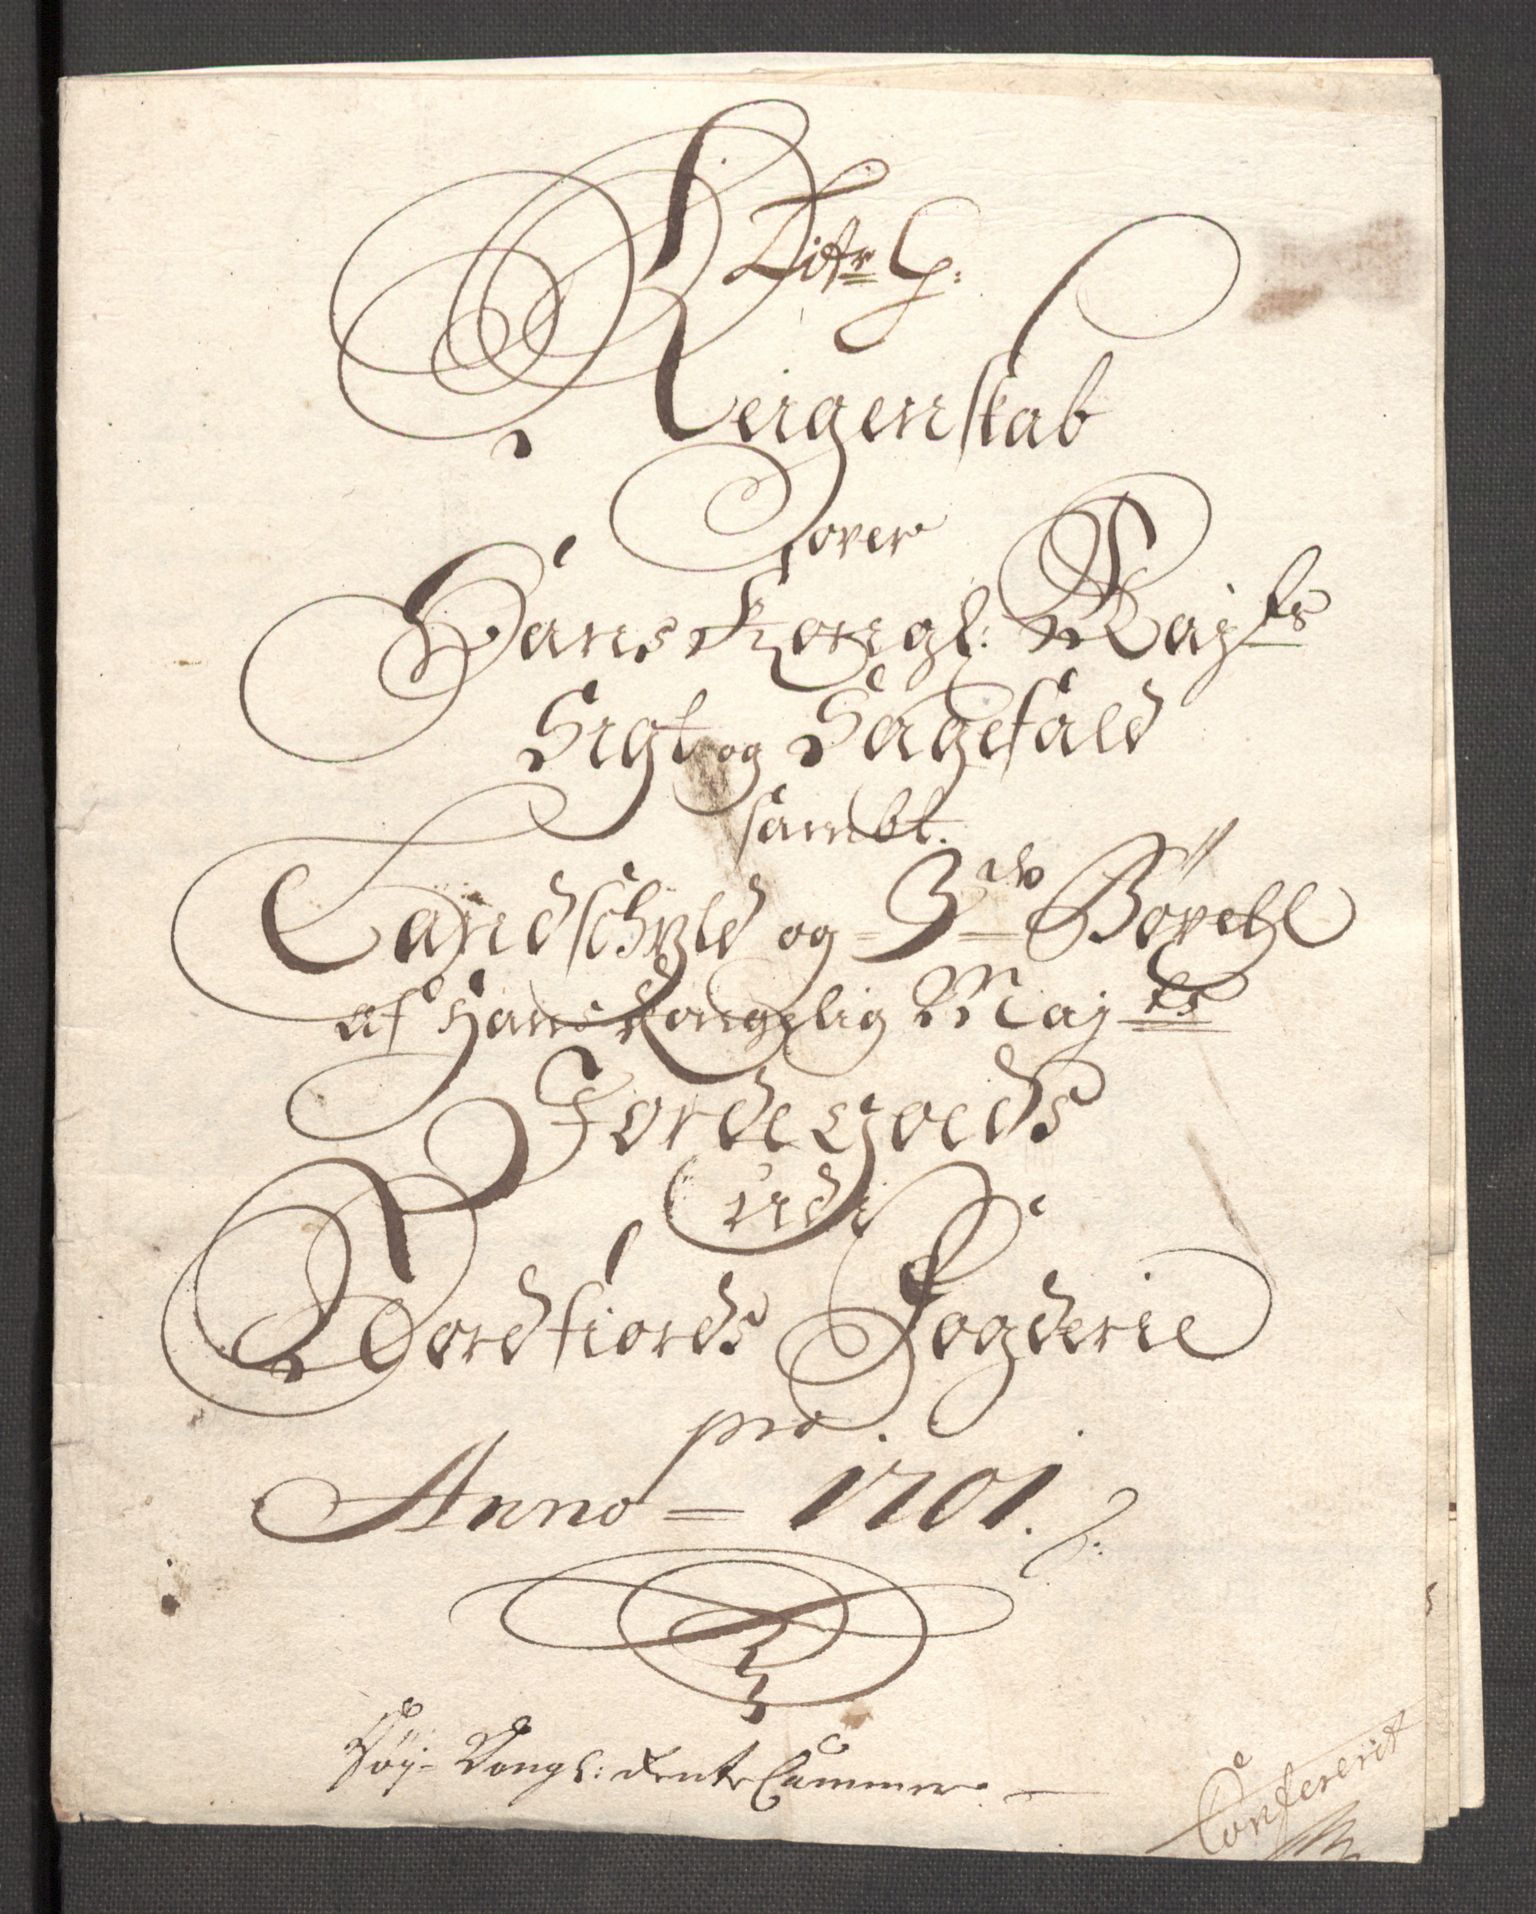 Litr G:
Reigenskab
over
Hans Kongl: Maj ts
Sigt og Sagefald
sambt.
Landschyld og 3 die Bøxel
af Hans Kongelig Maj ts
Jordegoeds
udi
Nordfiords Fogderie
pro.
Anno = 1701.
Høy- Kongl: Rente Cammer.
Confererit